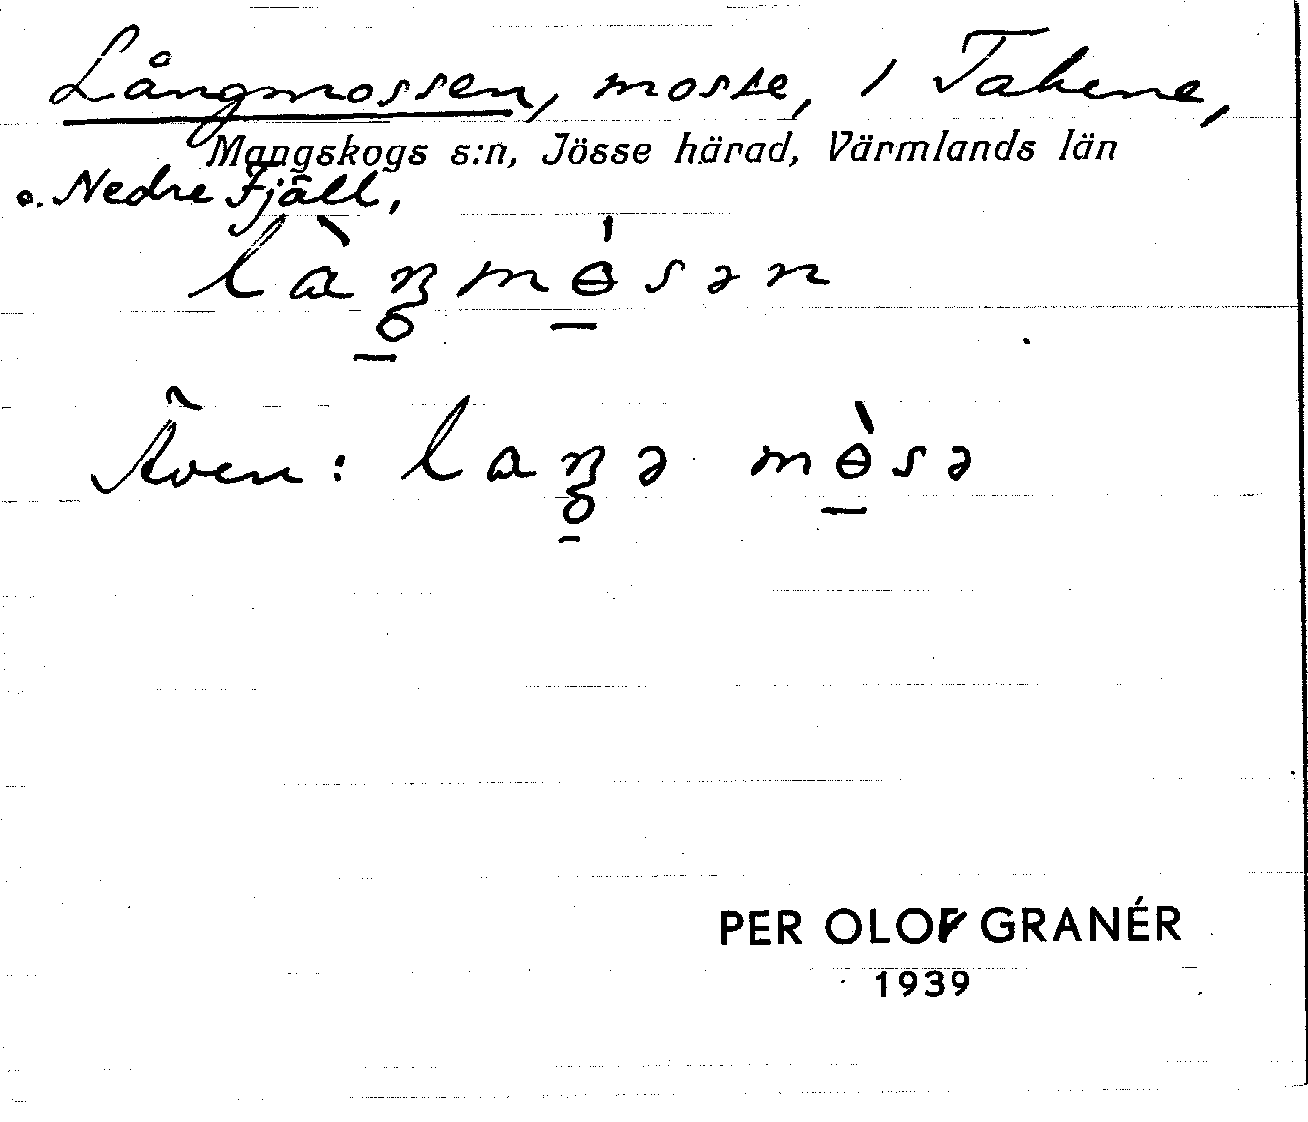 Långmossen, mosse, i Takene,
Mangskogs s:n, Jösse härad, Värmlands län
o. Nedre Fjäll,
làŋmɵ́sən
Även: laŋə mɵ̀sə
PER OLOF GRANÉR
1939